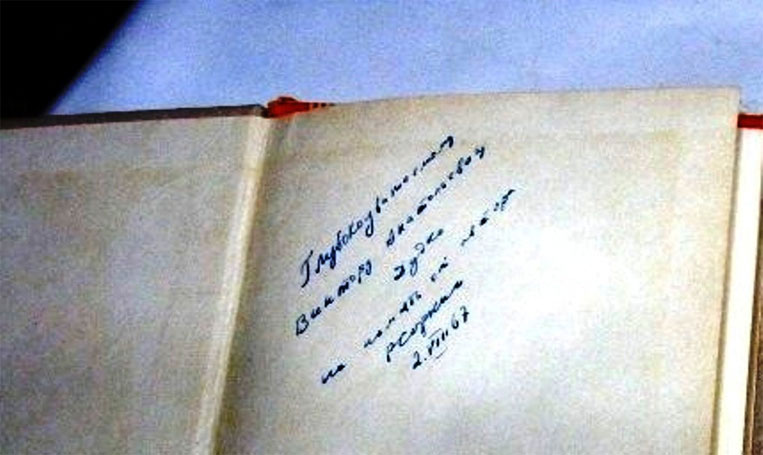 Глубокоуважаемому
Виктору Анатольевичу
Дудко
на память от автора
2.VIII 67